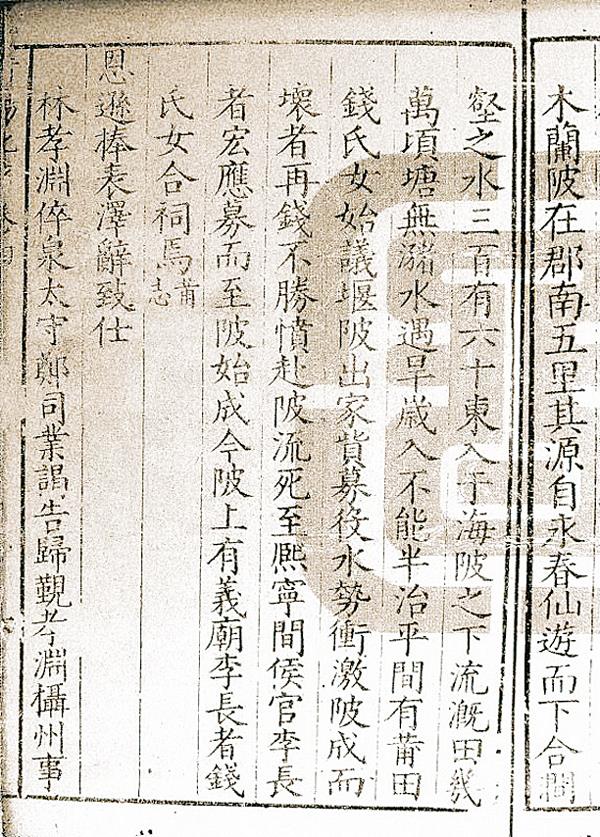 木蘭陂在郡南五里其源自永春仙遊而下合澗
壑之水三百有六十東入于海陂之下流溉田幾
萬頃塘無潴水遇旱歲入不能半治平間有莆田
錢氏女始議堰陂出家貲募役水勢衝激陂成而
壞者再錢不勝憤赴陂流死至熈寧間侯官李長
者宏應募而至陂始成今陂上有義廟李長者錢
氏女合祠焉莆志
恩遜捧表澤辭致仕
林孝淵倅泉太守鄭司業謁告歸覲孝淵攝州事